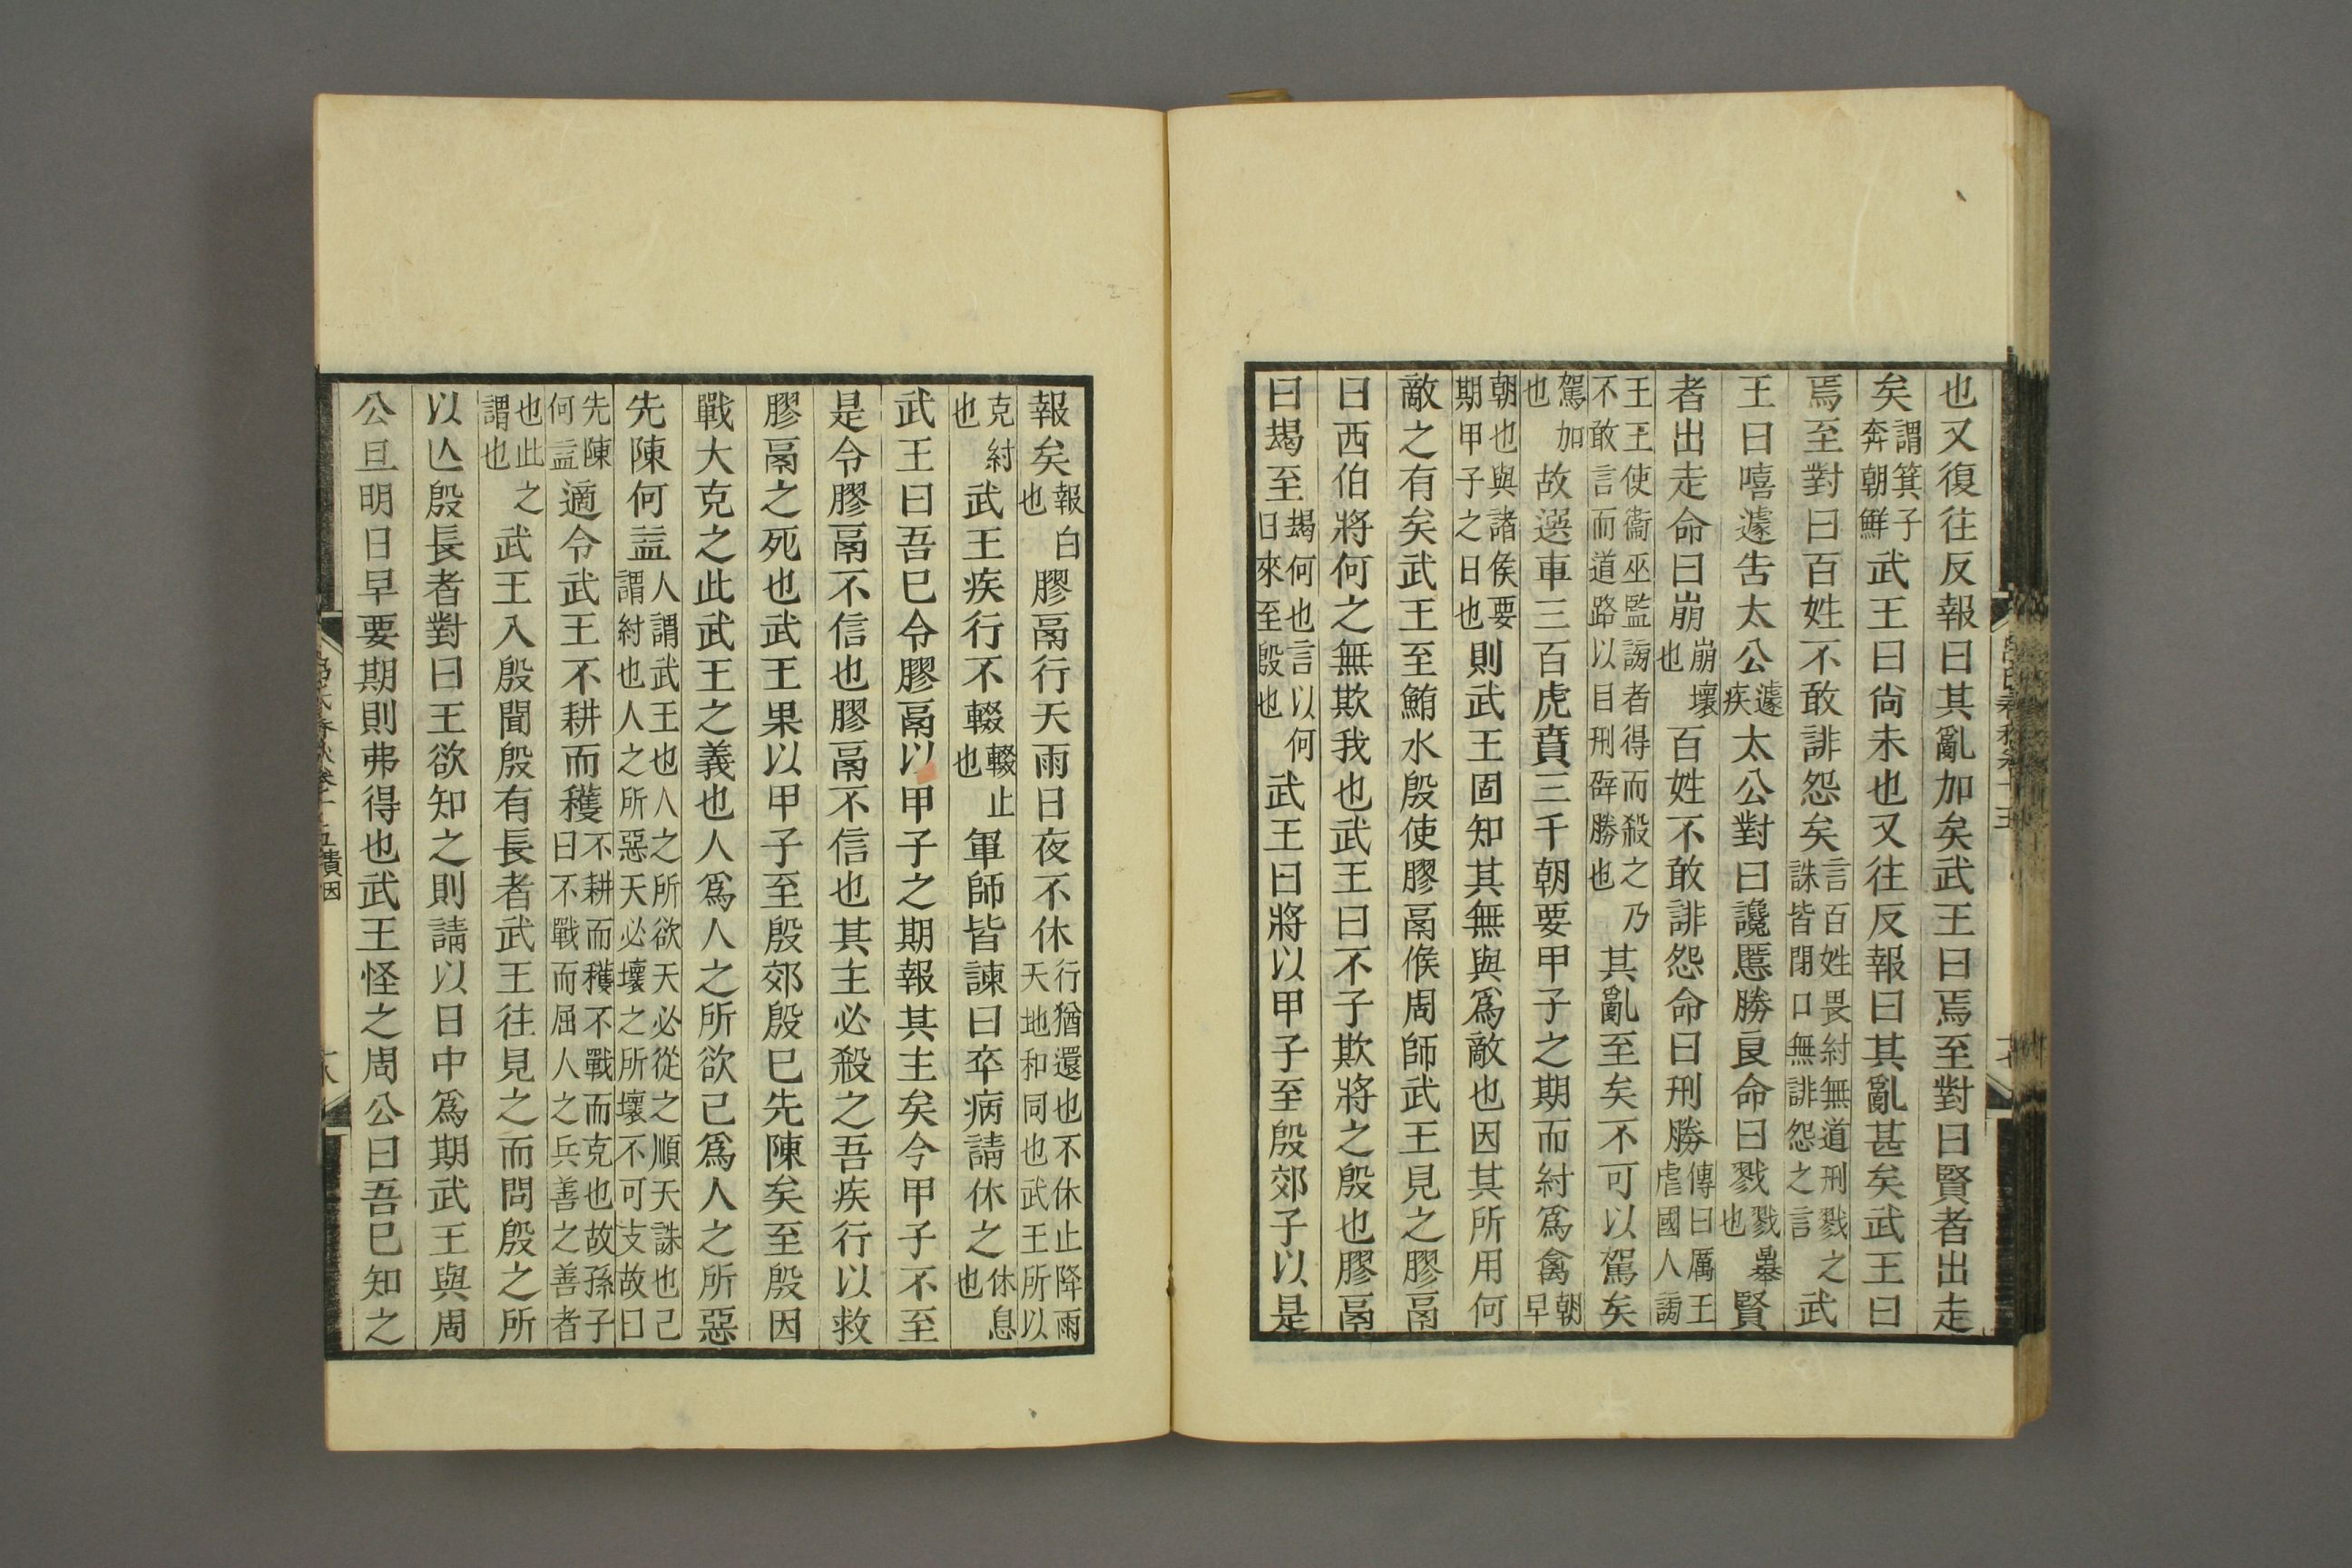 也又復往反報曰其亂加矣武王曰焉至對曰賢者出走
矣謂箕子奔朝鮮武王曰尙未也又往反報曰其亂甚矣武王曰
焉至對曰百姓不敢誹怨矣言百姓畏紂無道刑戮之誅皆閉口無誹怨之言武
王曰嘻遽告太公遽疾太公對曰讒慝勝良命曰戮戮暴也賢
者出走命曰崩崩壞也百姓不敢誹怨命曰刑勝傳曰厲王虐國人謗
王王使衞巫監謗者得而殺之乃不敢言而道路以目刑辟勝也其亂至矣不可以駕矣
駕加也故選車三百虎賁三千朝要甲子之期而紂爲禽朝早
朝也與諸侯要期甲子之日也則武王固知其無與爲敵也因其所用何
敵之有矣武王至鮪水殷使膠鬲候周師武王見之膠鬲
曰西伯將何之無欺我也武王曰不子欺將之殷也膠鬲
曰朅至朅何也言以何日來至殷也武王曰將以甲子至殷郊子以是
報矣報白也膠鬲行天雨日夜不休行猶還也不休止降雨天地和同也武王所以
克紂也武王疾行不輟輟止也軍師皆諫曰卒病請休之休息也
武王曰吾已令膠鬲以甲子之期報其主矣今甲子不至
是令膠鬲不信也膠鬲不信也其主必殺之吾疾行以救
膠鬲之死也武王果以甲子至殷郊殷已先陳矣至殷因
戰大克之此武王之義也人爲人之所欲己爲人之所惡
先陳何益人謂武王也人之所欲天必從之順天誅也己謂紂也人之所惡天必壞之所壞不可支故曰
先陳何益適令武王不耕而穫不耕而穫不戰而克也故孫子曰不戰而屈人之兵善之善者
也此之謂也武王入殷聞殷有長者武王往見之而問殷之所
以亾殷長者對曰王欲知之則請以日中爲期武王與周
公旦明日早要期則弗得也武王怪之周公曰吾已知之